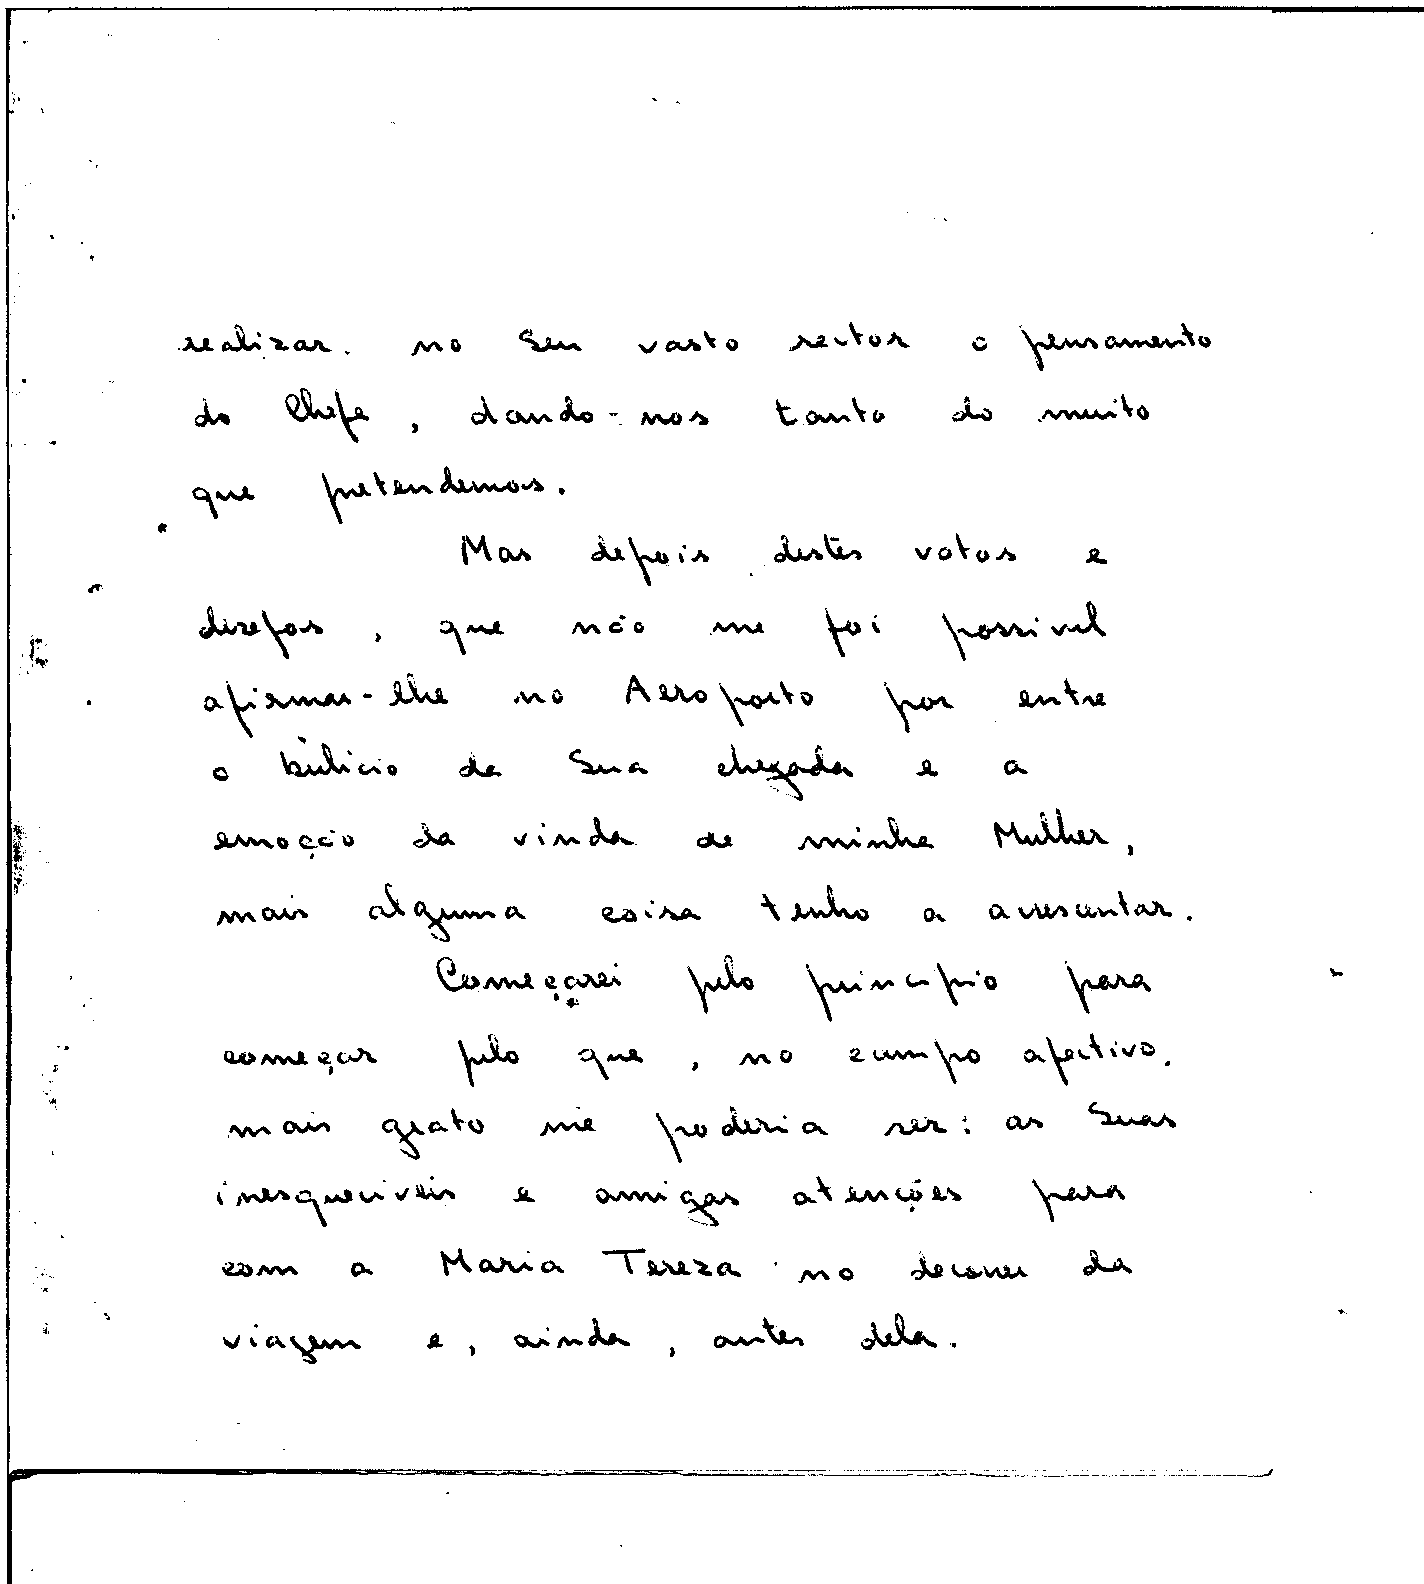 realizar no Seu vasto sector o pensamento
do Chefe, dando-nos tanto do muito
que pretendemos.
Mas depois destes votos e
desejos, que não me foi possivel
afirmar-lhe no Aeroporto por entre
o bulicio da Sua chegada e a
emoção da vinda de minha Mulher,
mais alguma coisa tenho a acrescentar.
Começarei pelo principio para
começar pelo que, no campo afectivo,
mais grato me poderia ser: as Suas
inesqueciveis e amigas atenções para
com a Maria Tereza no decorrer da
viagem e, ainda, antes dela.